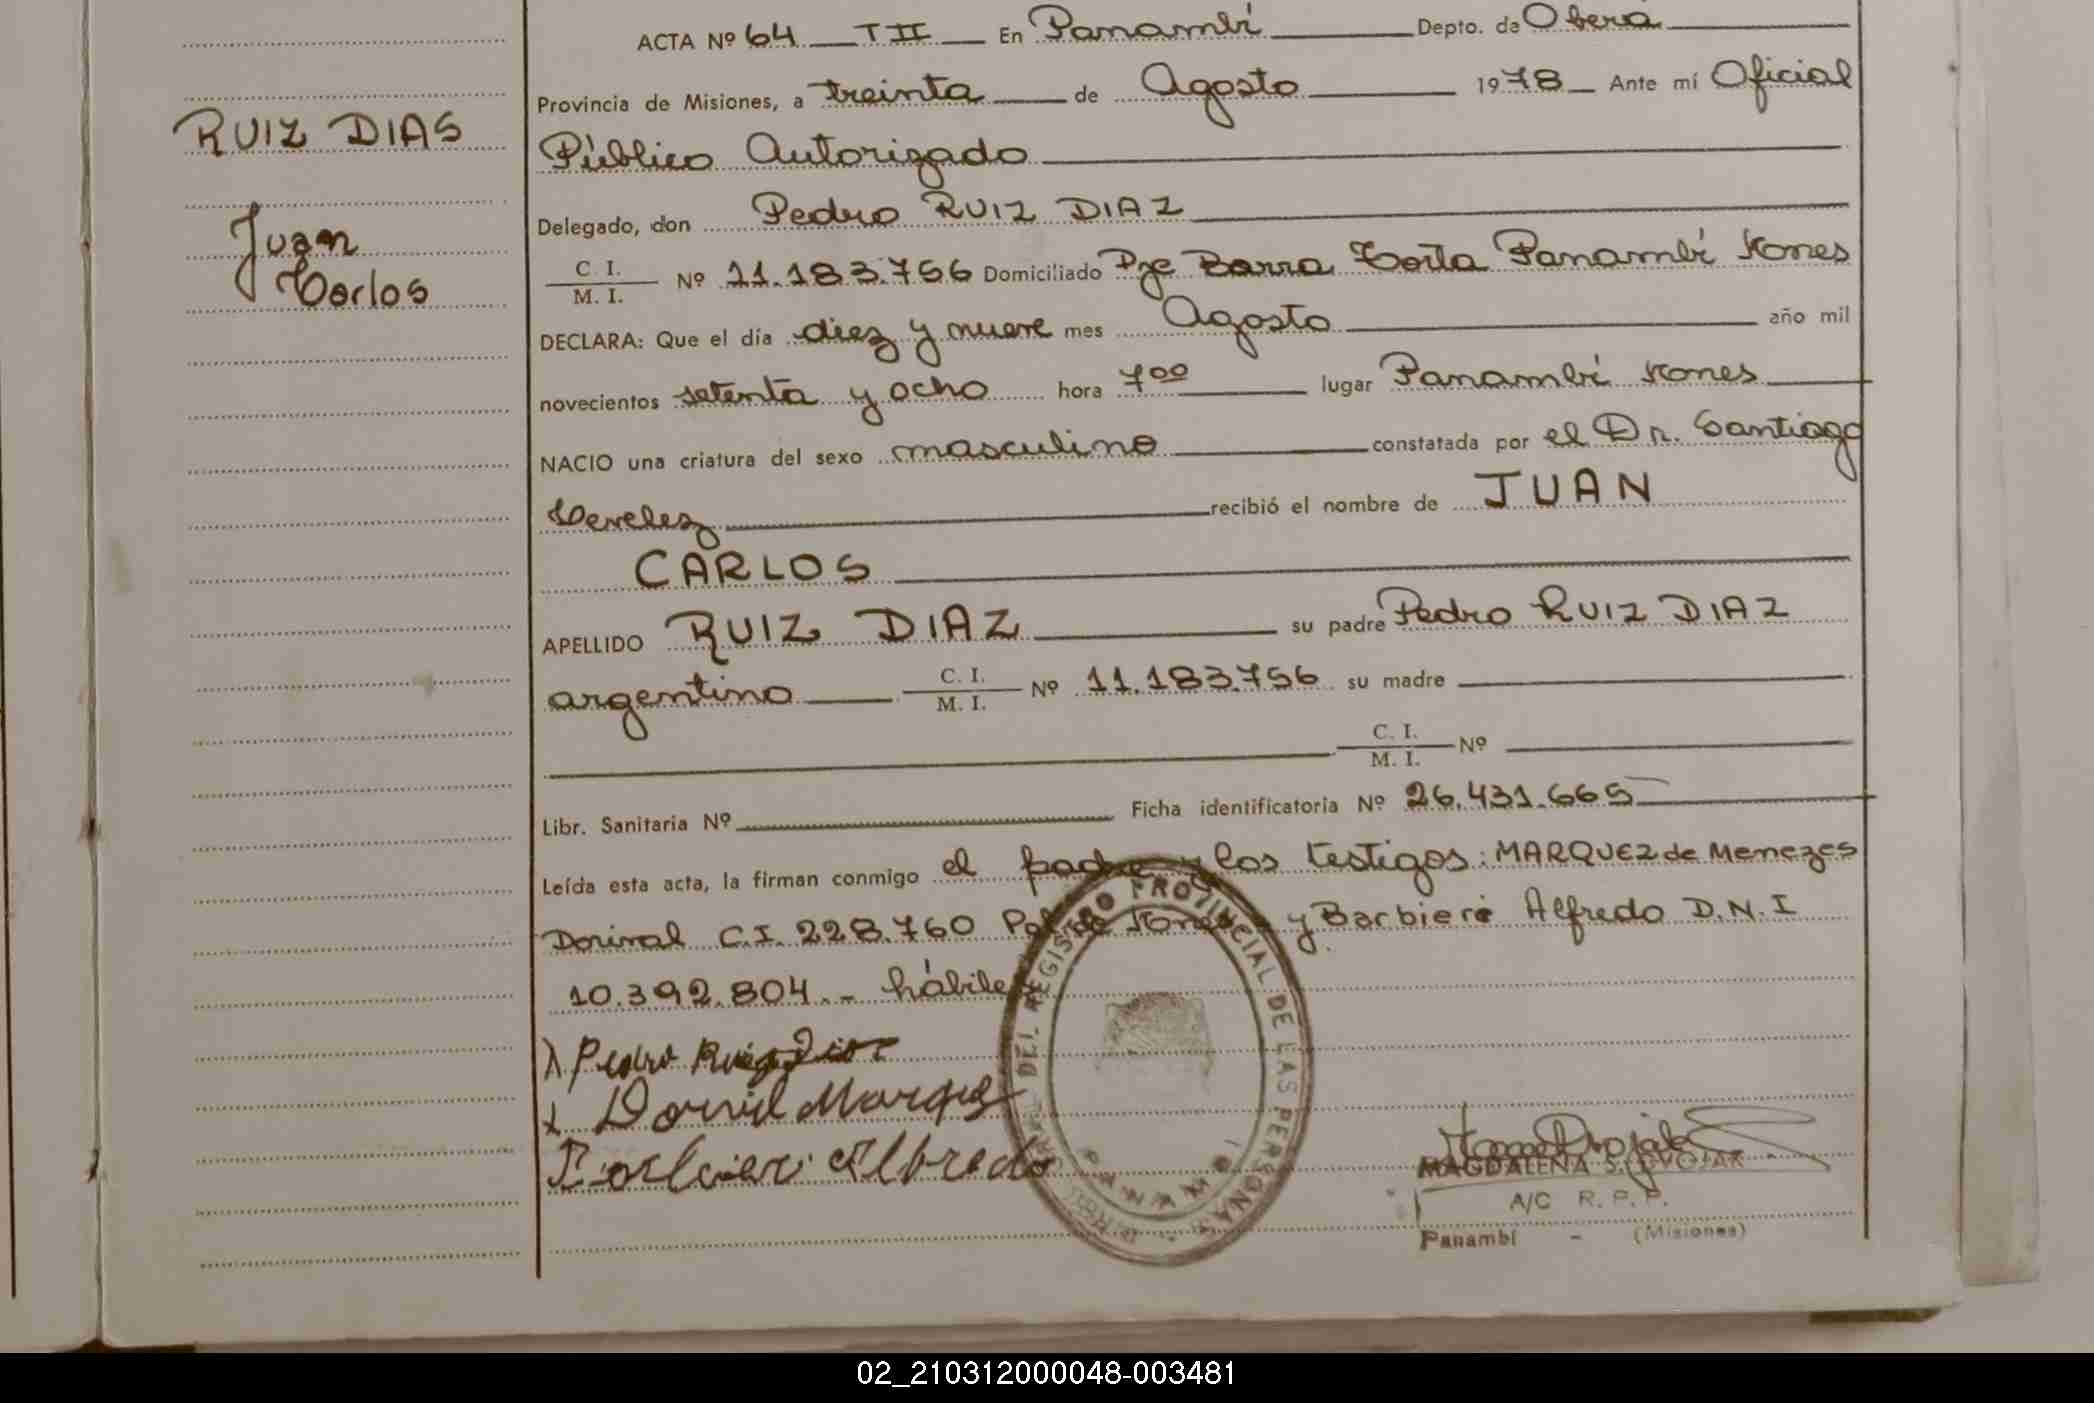 ACTA Nº 64 TII En Panambí Depto. de Oberá
Provincia de Misiones, a treinta de Agosto 1978 Ante mí Oficial
RUIZ DIAS
Público Autorizado
Delegado, don Pedro RUIZ DIAZ
Juan
Carlos
C. I.
M. I. Nº 11.183.756 Domiciliado Pje Barra Panambí
DECLARA: Que el día diez y nueve mes Agosto año mil
novecientos setenta y ocho hora 7⁰⁰ lugar Panambí
NACIO una criatura del sexo masculino constatada por el Dr. Santiago
recibió el nombre de JUAN
CARLOS
APELLIDO RUIZ DIAZ su padre Pedro RUIZ DIAZ
argentino C. I.
M. I. Nº 11.183.756 su madre
C. I.
M. I. Nº
Libr. Sanitaria Nº Ficha identificatoria Nº 26.431.665
Leída esta acta, la firman conmigo el padre y los testigos: MARQUEZ de Menezes
Dorival C.I. 228.760 y Barbiero Alfredo D.N.I
10.392.804.- hábiles
Pedro Ruiz Diaz
Dorival Marques
Alfredo
DEL REGISTRO PROVINCIAL DE LAS PERSONAS
MAGDALENA S.
A/C R. P. P.
Panambí - (Misiones)
02_210312000048-003481